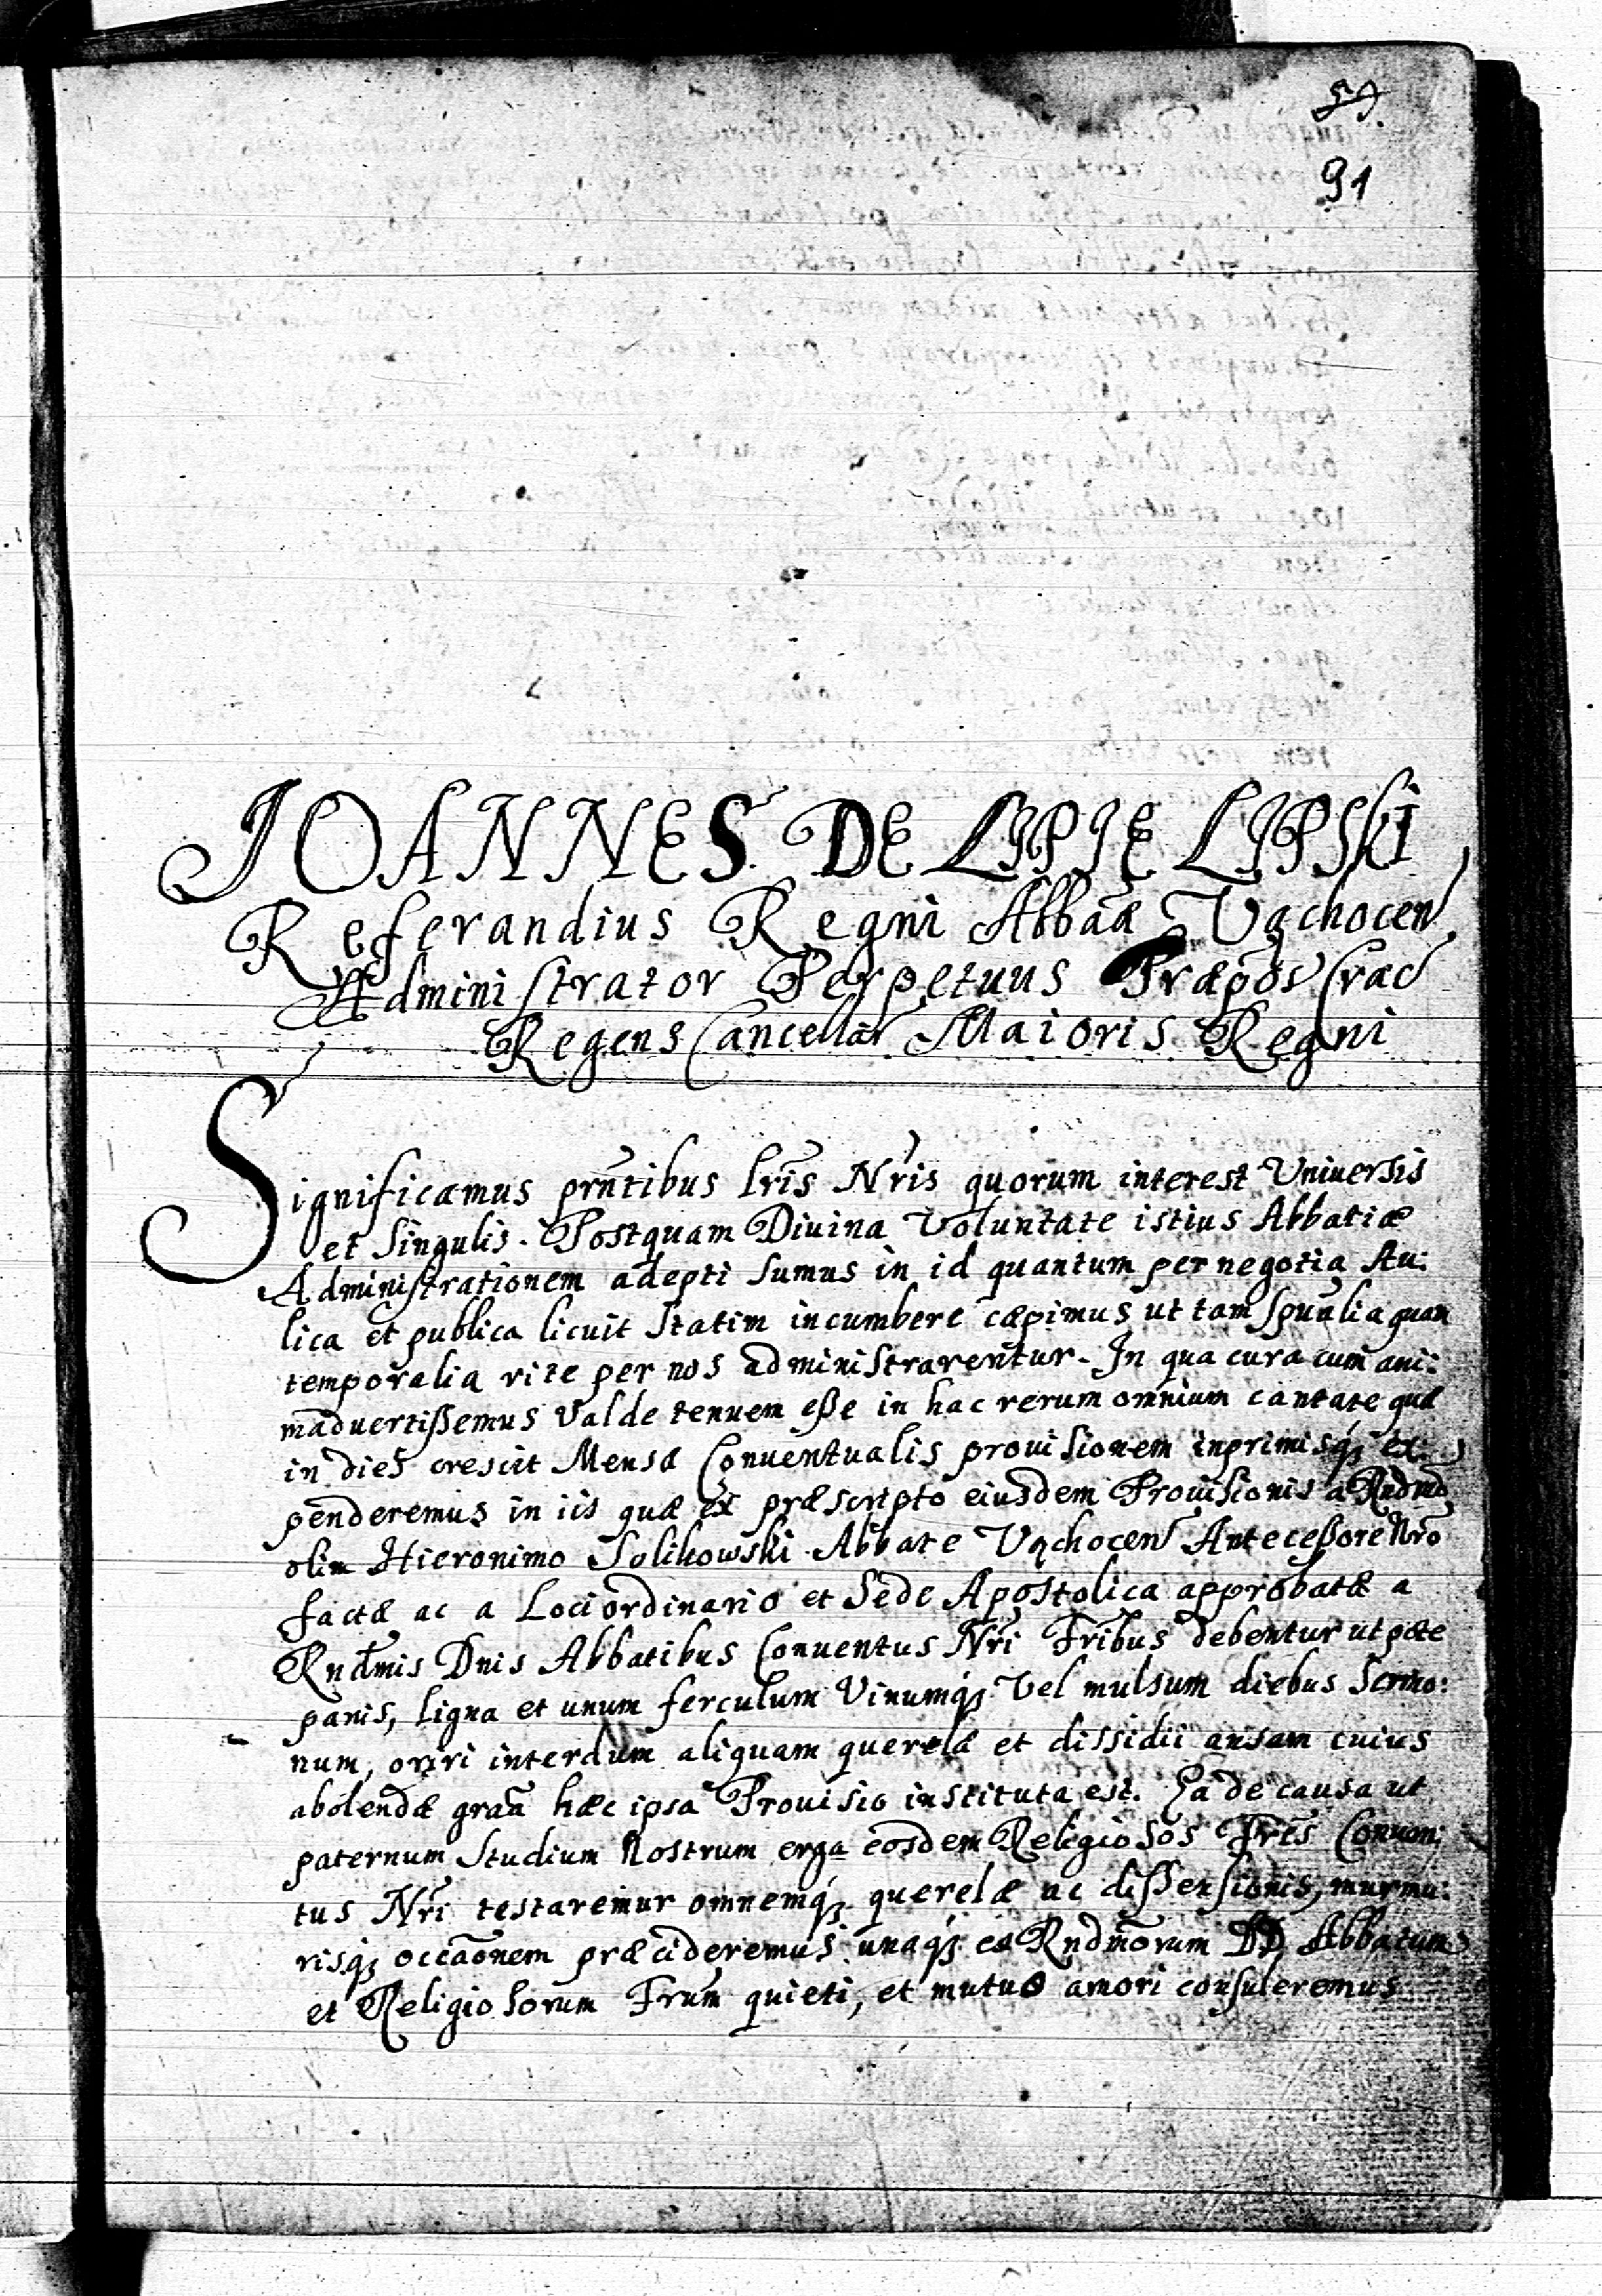 91
IOANNES DE LIPIE LIPSKI
Referandius Regni Abbaã Vąchocen
Administrator Perpetuus Præpõs Crac
Regens Cancellar Maioris Regni
Significamus prñtibus lrĩs Nrĩs quorum interest Vniuersis
et singulis. Postquam Diuina Voluntate istius Abbatiæ
Administrationem adepti sumus in id quantum per negotia Au:
lica et publica licuit statim incumbere cæpimus ut tam spũalia quam
temporalia rite per nos administrarentur. In qua cura cum ani:
maduertißemus valde tenuem eße in hac rerum omnium caritate quæ
in dies crescit Mensæ Conuentualis prouisionem inprimisq́ꝫ ex:
penderemus in iis quæ ex præscripto eiusdem Prouisionis a Rndmo
olim Hieronimo Solikowski Abbate Vąchocen Anteceßore Nrõ
factæ ac a Loci ordinario et Sede Apostolica approbatæ a
Rndmis Dnis Abbatibus Conuentus Nrĩ Frĩbus debentur utpote
panis, ligna et unum ferculum Vinumq́ꝫ Vel mulsum diebus Sermo:
num, oriri interdum aliquam querelæ et dissidii ansam cuius
abolendæ graã hæc ipsa Prouisio instituta est. Ea de causa ut
paternum studium Nostrum erga eosdem Religiosos Frẽs Conuen:
tus Nrĩ testaremur omnemq́ꝫ querelæ ac dißensionis, murmu:
risq́ꝫ occãonem præcideremus unaq́ꝫ ea Rndmõrum DD Abbatum
et Religiosorum Frũm quieti, et mutuo amori consuleremus